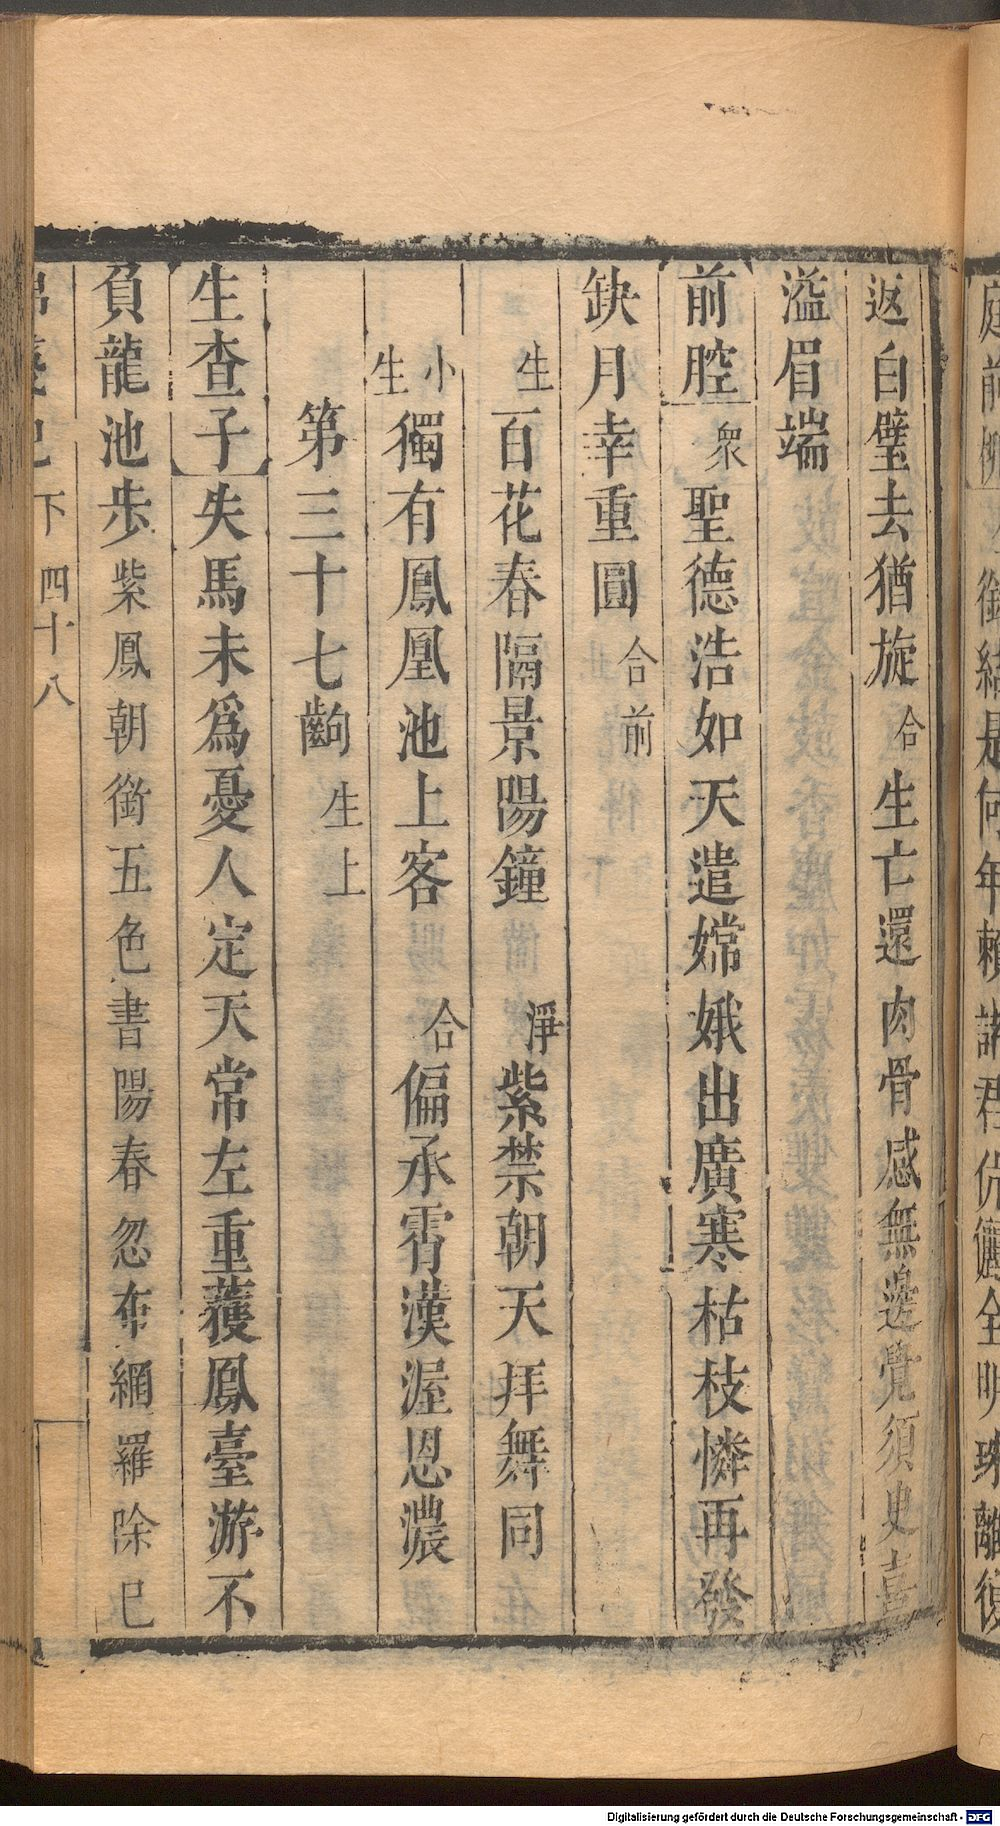 庭前 銜結是何年賴諸君伉儷全明珠離復
返白璧去猶旋合生亡還肉骨感無邊覺須史喜
溢眉端
前腔衆聖德浩如天遣嫦娥出廣寒枯枝憐再發
缺月幸重圓合前
生百花春隔景陽鐘 淨紫禁朝天拜舞同
小生獨有鳳凰池上客 合偏承霄漢渥恩濃
第三十七齣 生上
生查子失馬未爲憂人定天常左重蒦鳳臺游不
負龍池步紫鳳朝銜五色書陽春忽布網羅除已
下 四十八
Digitalisierung gefördert durch die Deutsche Forschungsgemeinschaft - DFG